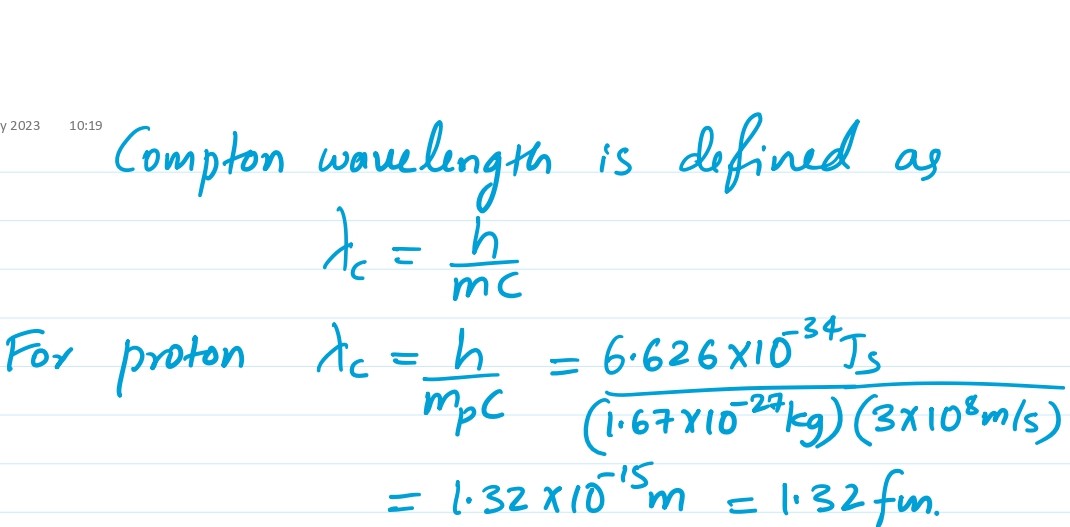 y 2023 10:19
Compton wavelength is defined as
λc = h/mc
For proton λc = h/mpc = 6.626×10⁻³⁴Js/(1.67×10⁻²⁷kg)(3×10⁸m/s)
= 1.32×10⁻¹⁵m = 1.32fm.